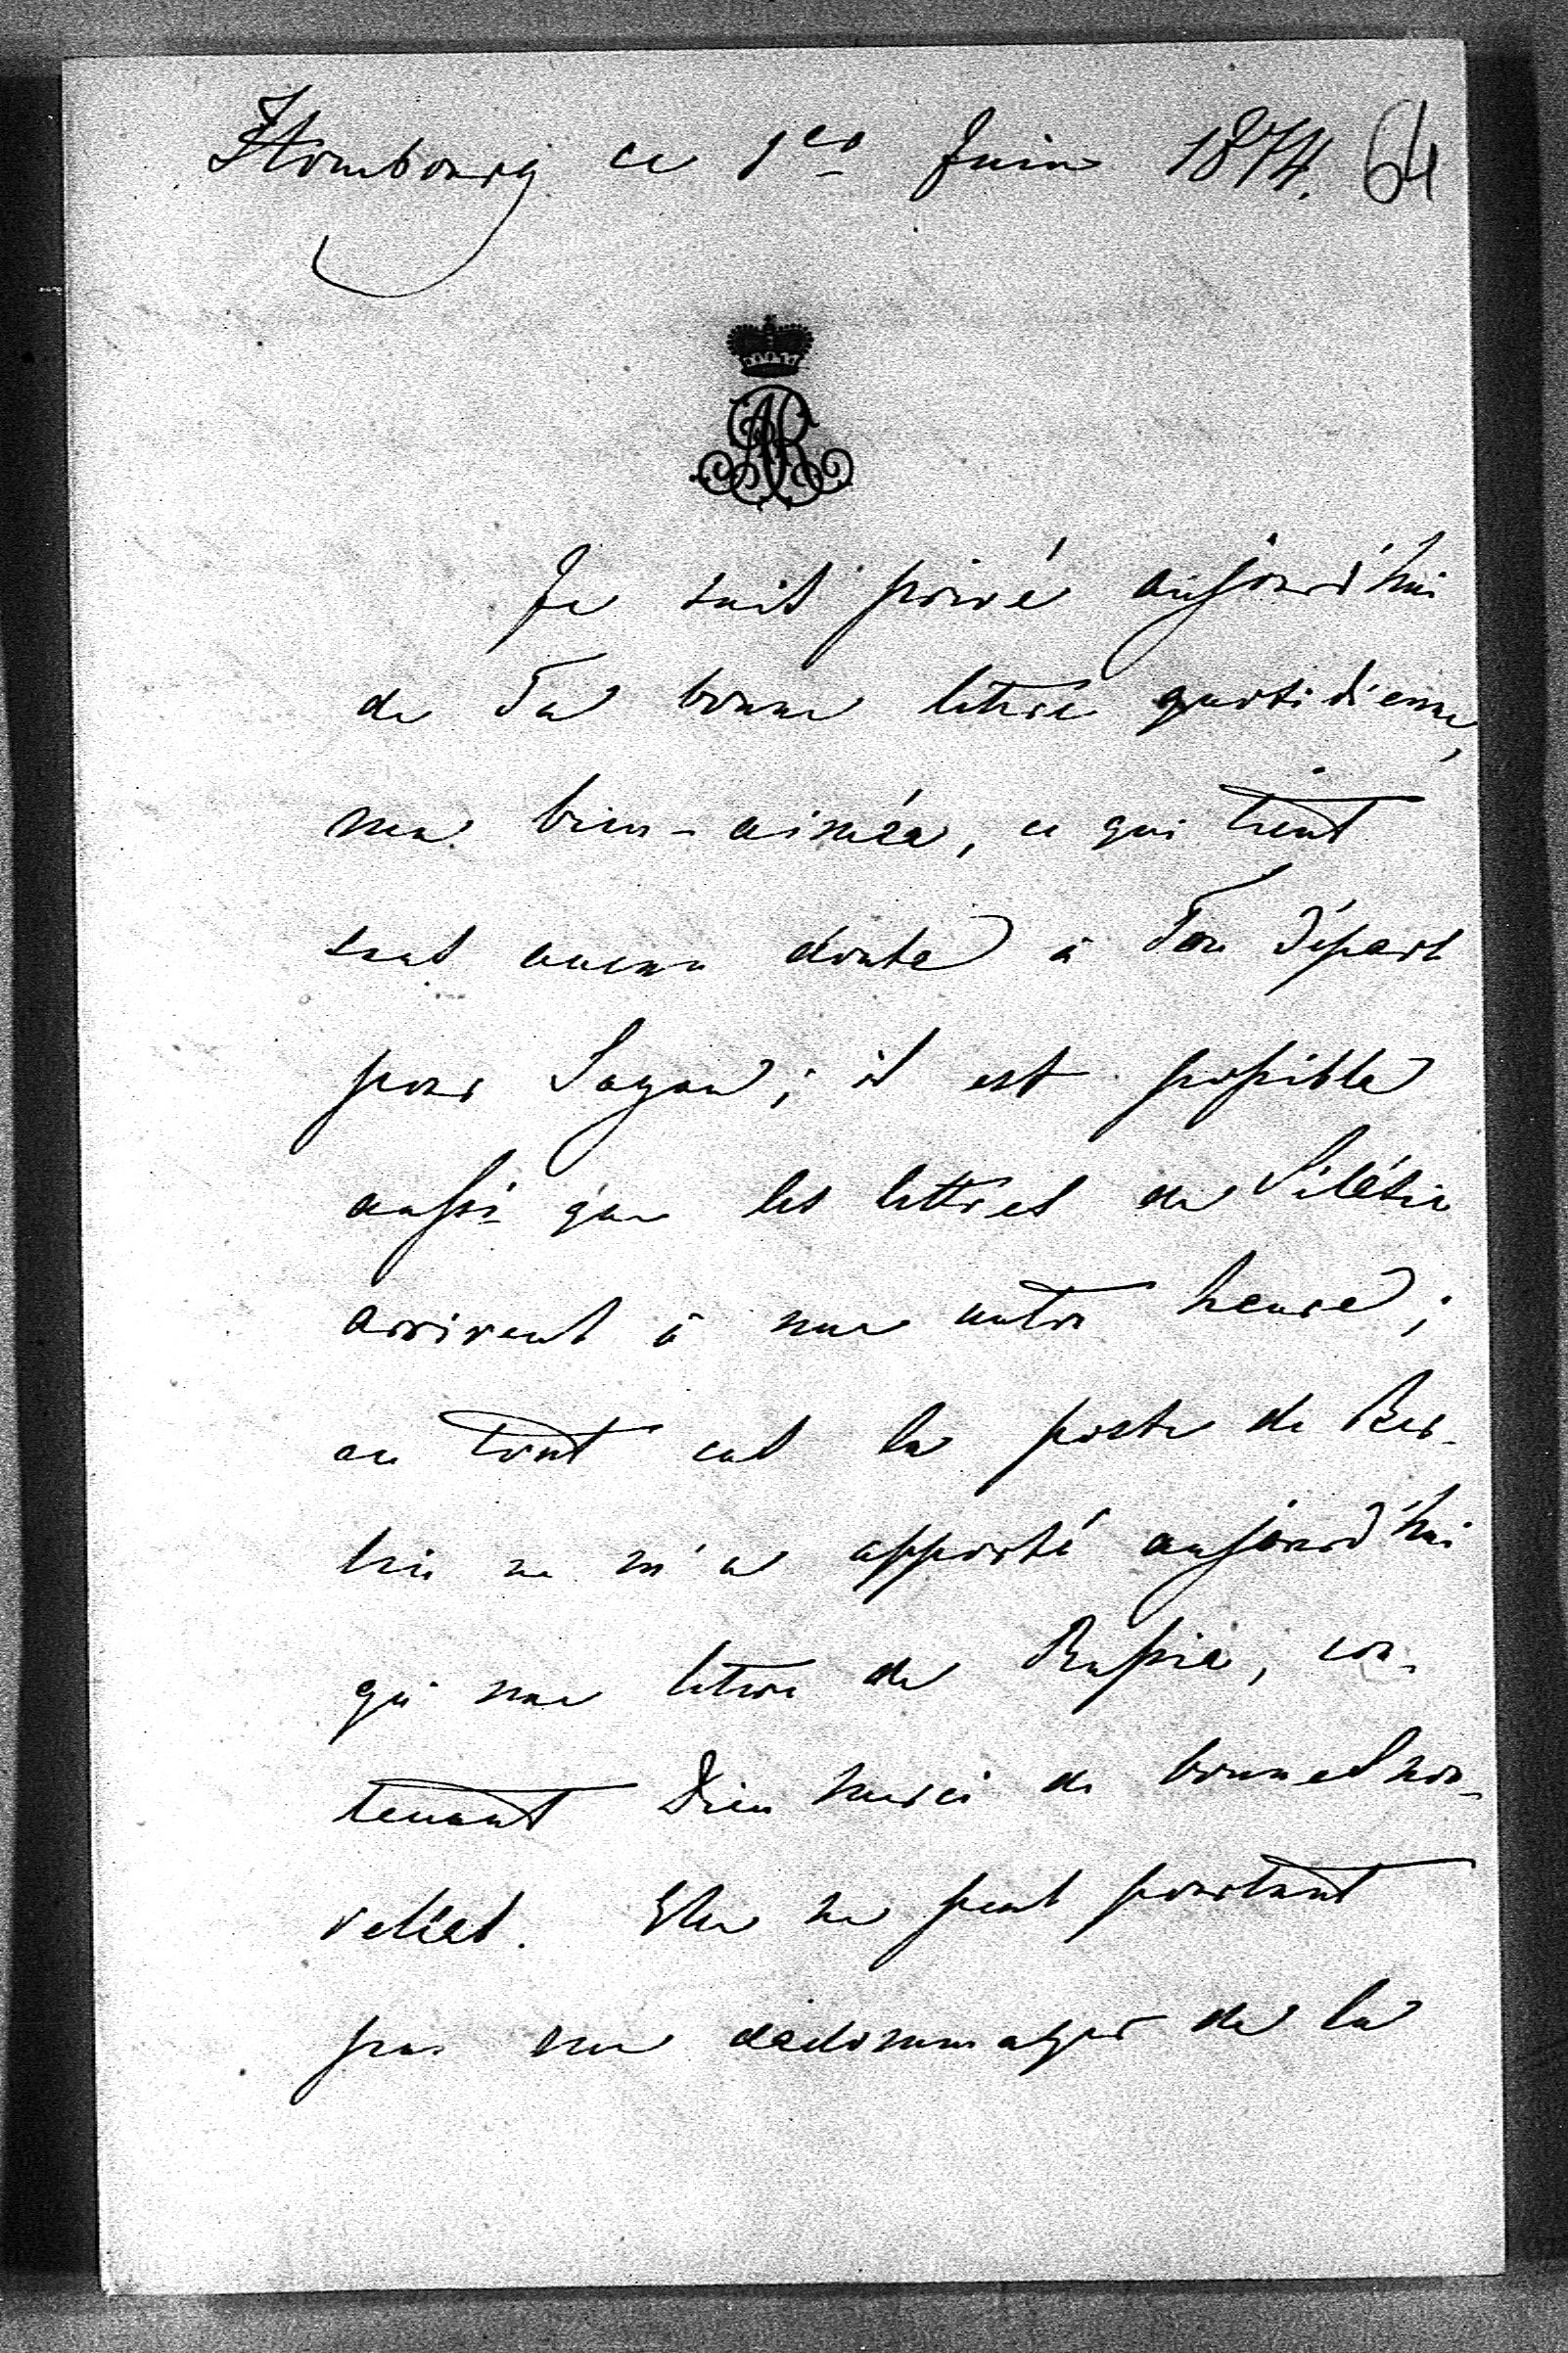 Hombourg ce 1er Juin 1874. 64
AR
Je suis privé aujourd'hui
de Ta bonne lettre quotidienne,
ma bien-aimée, ce qui tient
sans aucun doute à Ton départ
pour Sagan; il est possible
aussi que les lettres de Silésie
arrivent à une autre heure;
en tout cas la poste de Ber-
lin ne m'a apporté aujourd'hui
qu'une lettre de Russie, con-
tenant Dieu merci de bonnes nou-
velles. Elle ne peut pourtant
pas me dedommager de la